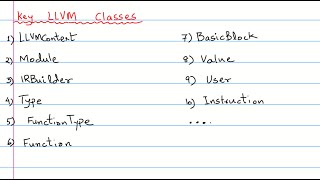 Key LLVM Classes
1) LLVMContext
2) Module
3) IRBuilder
4) Type
5) FunctionType
6) Function
7) BasicBlock
8) Value
9) User
10) Instruction
.....